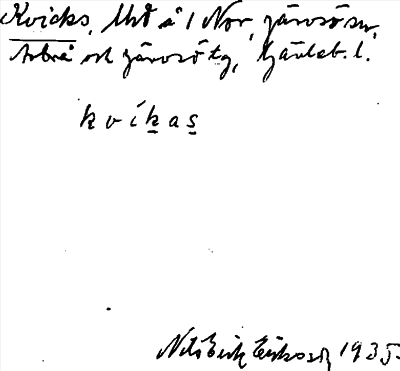 Kvicks, å 1 Nor, Järvsö sn,
Arbrå och Järvsö tg, Gävleb. l.
kvíkas
Nils Erik Eriksson 1935